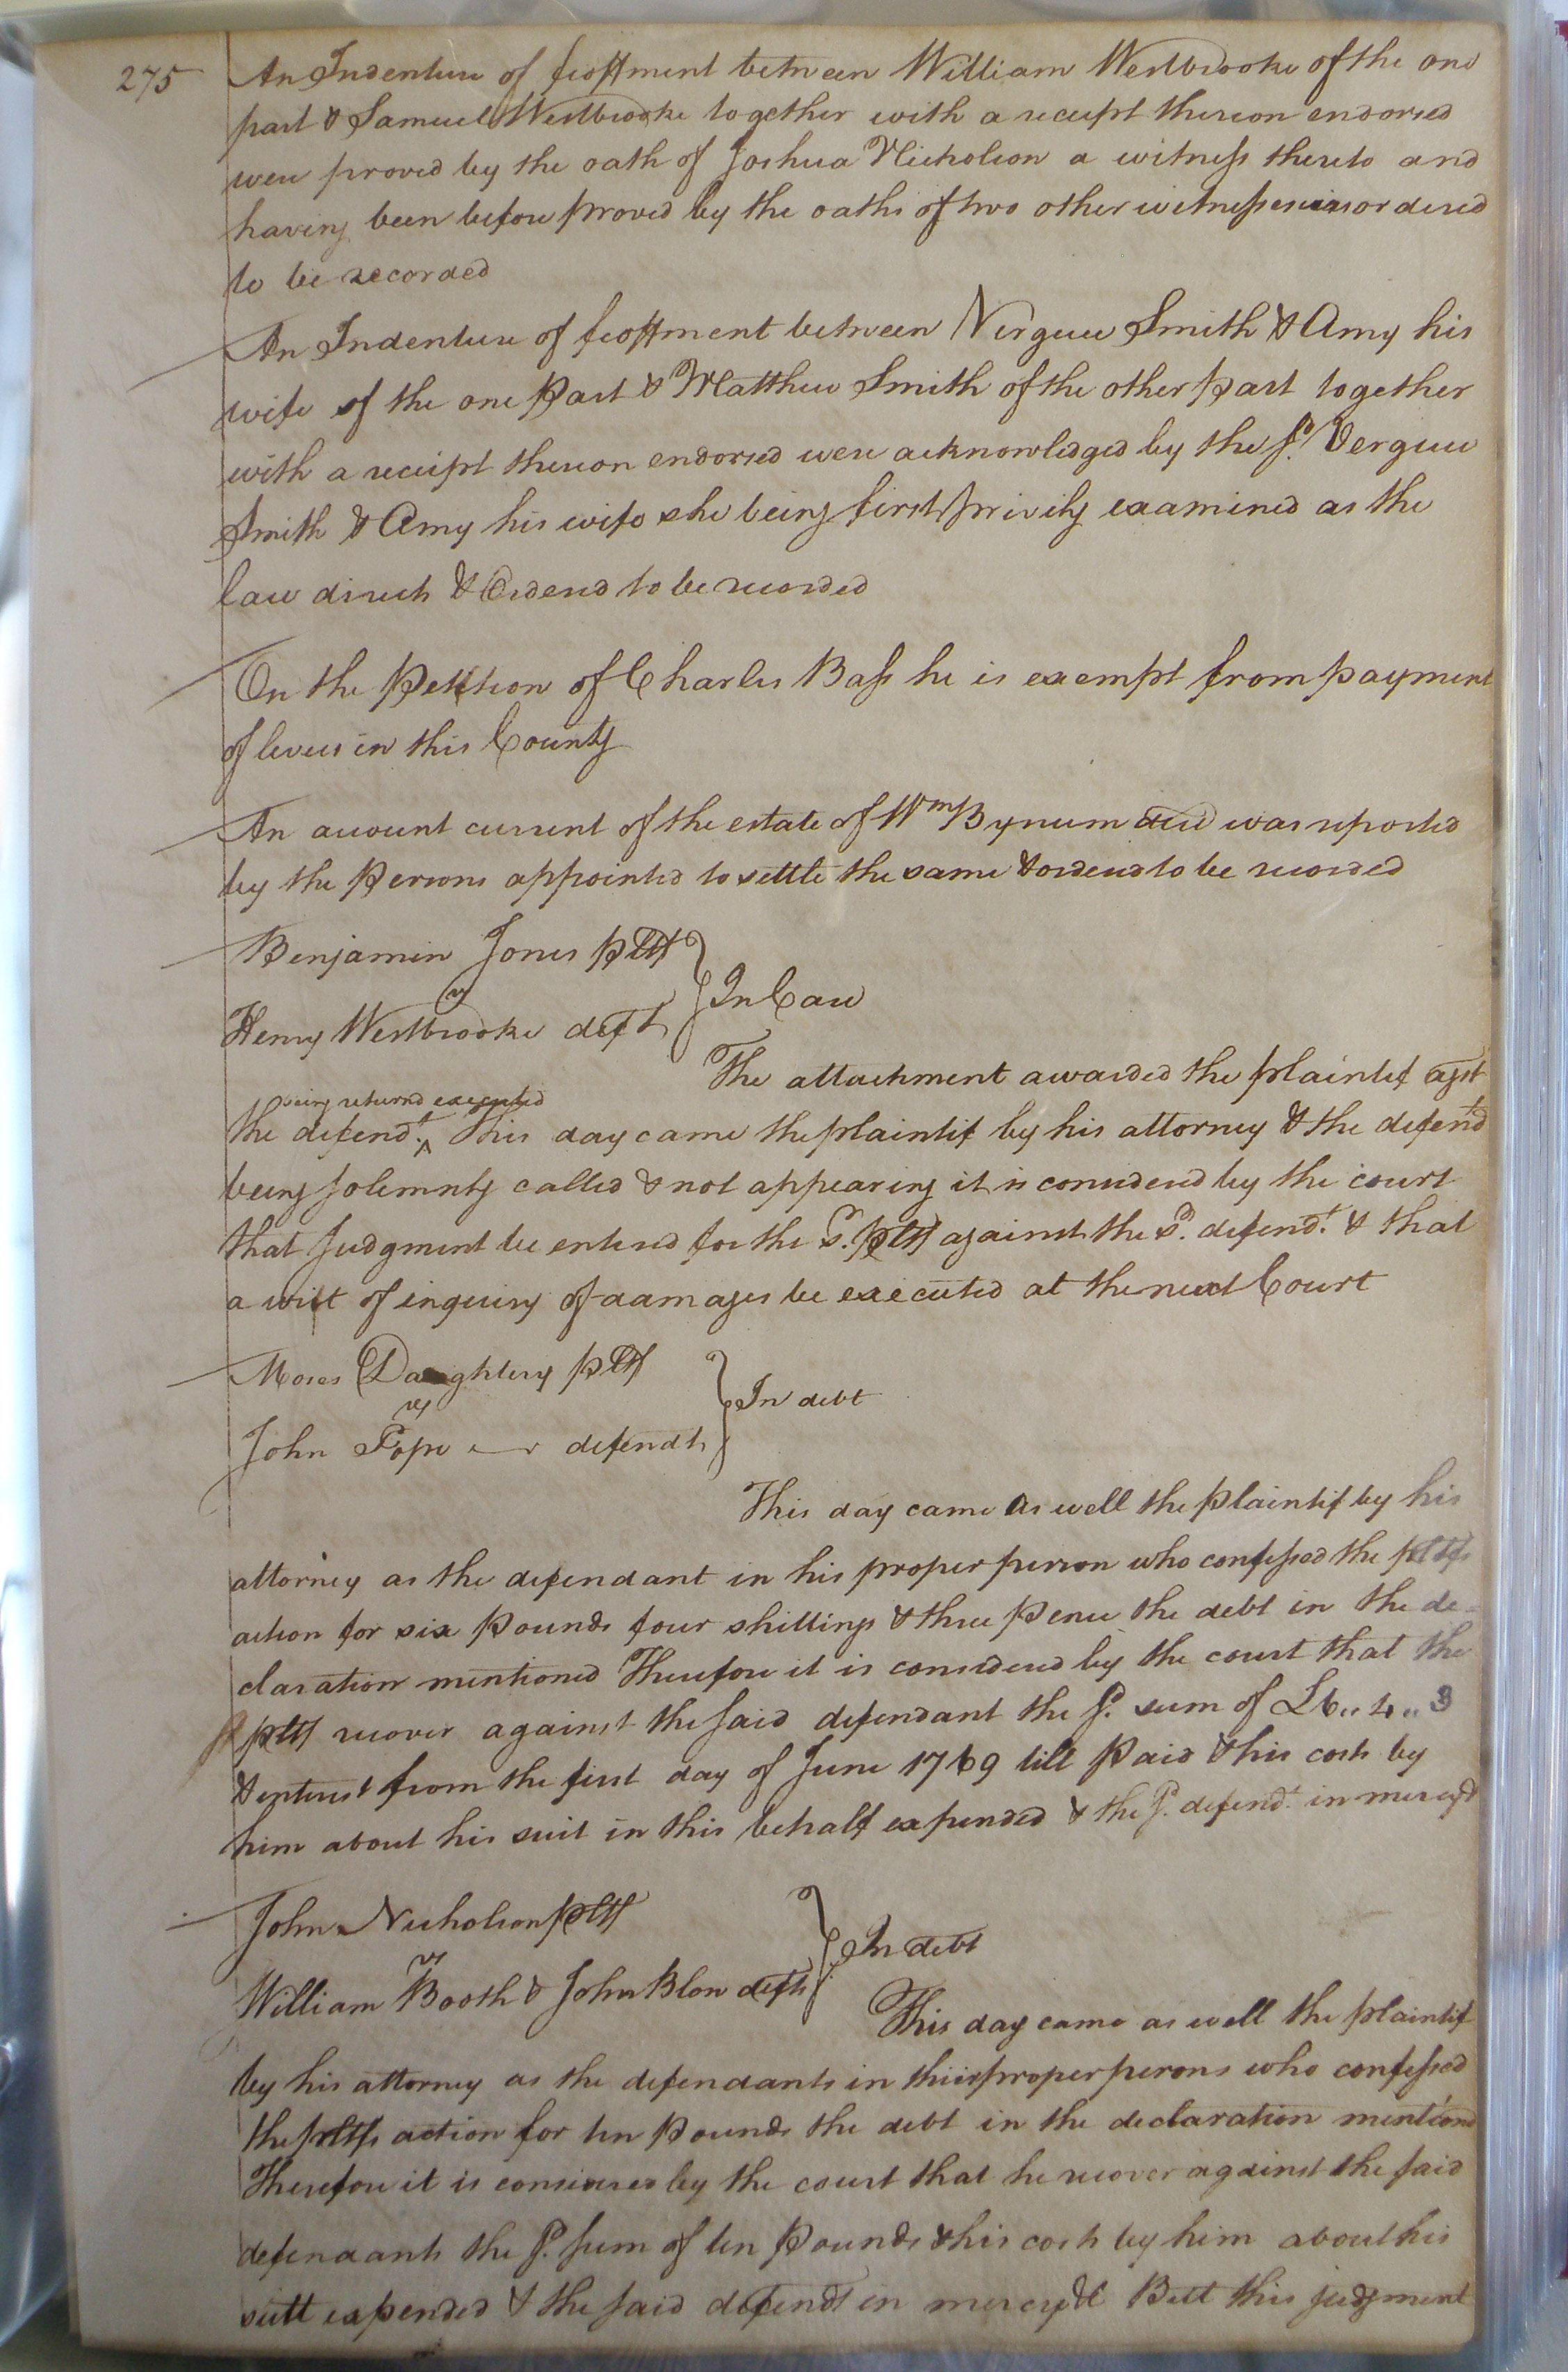 275
An Indenture of feoffment between William Westbrooke of the one
part & Samuel Westbrooke together with a receipt thereon endorsed
were proved by the oath of Joshua Nicholson a witness thereto and
having been before proved by the oaths of two other witnesses is ordered
to be recorded
An Indenture of feoffment between Virguce Smith & Amy his
wife of the one part & Matthew Smith of the other part together
with a receipt thereon endorsed were acknowledged by the sd. Verguce
Smith & Amy his wife she being first privily examined as the
law directs & Ordered to be recorded
On the Petition of Charles Bass he is exempt from payment
of levies in this County
An account current of the estate of Wm Bynum decd was reported
by the Persons appointed to settle the same & ordered to be recorded
Benjamin Jones pltf
vs
In Case
Henry Westbrooke deft
The attachment awarded the plaintif agst
being returnd executed
the defendt. ^ This day came the plaintif by his attorney & the defendt
being solemnly called & not appearing it is considered by the court
that Judgment be entered for the sd. pltf against the sd. defendt. & that
a writ of inquiry of damages be executed at the next Court
Moses Daughtery pltf
vs
In debt
John Pope defendt
This day came as well the plaintif by his
attorney as the defendant in his proper person who confessed the pltfs
action for six pounds four shillings & three pence the debt in the de=
claration mentioned Therefore it is considered by the court that the
pltf recover against the said defendant the sd. sum of £6..4..3
& interest from the first day of June 1769 till paid & his costs by
him about his suit in this behalf expended & the sd. defendt. in mercy &
John Nicholson pltf
vs
In debt
William Booth & John Blow defts
This day came as well the plaintif
by his attorney as the defendants in their proper persons who confessed
the pltfs action for ten pounds the debt in the declaration mentiond
Therefore it is considered by the court that he recover against the said
defendants the sd. sum of ten pounds & his costs by him about his
suit expended & the said defendts in mercy &c But this judgment